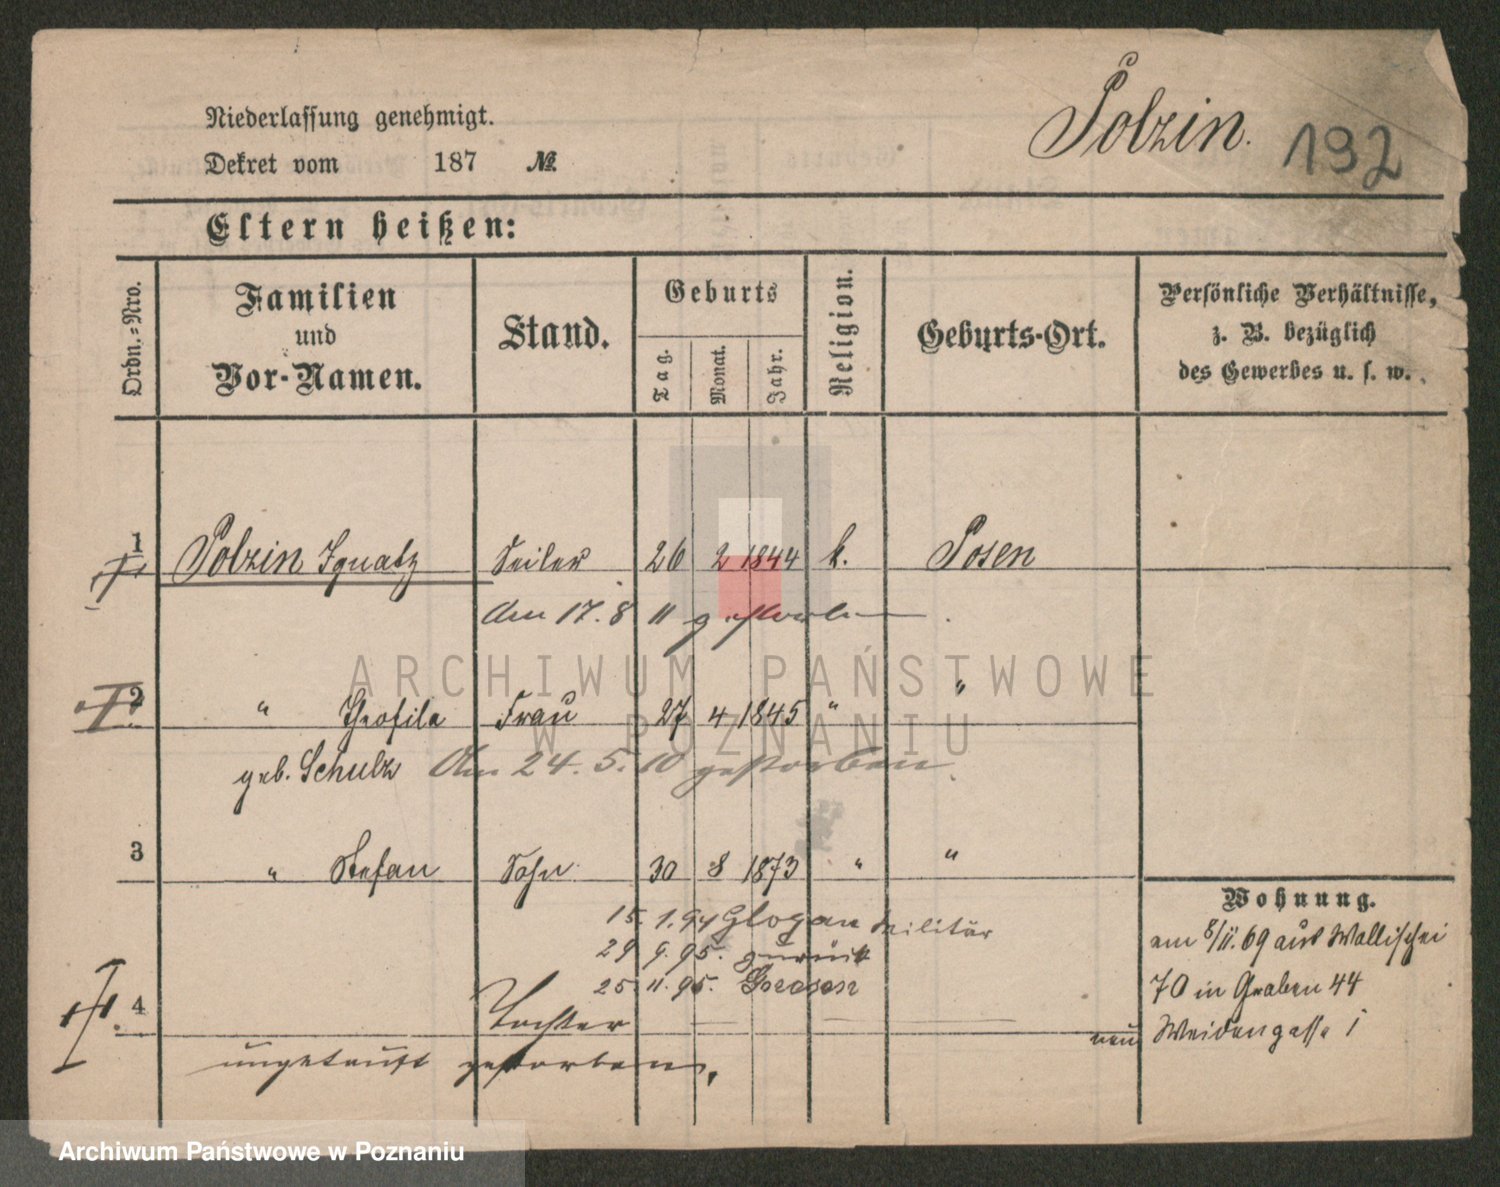 Niederlassung genehmigt.
Polzin. 192
Dekret vom 187 №
Eltern heißen:
Ordn.=Nro.
Familien und Vor-Namen.
Stand.
Geburts
Tag.
Monat.
Jahr.
Religion.
Geburts-Ort.
Persönliche Verhältnisse, z. B. bezüglich des Gewerbes u. s. w.
1 Polzin Ignatz Seiler 26 2 1844 k. Posen
Am 17. 8 11 gestorben.
2 " Theofila Frau 27 4 1845 " "
geb. Schulz Am 24. 5. 10 gestorben.
3 " Stefan Sohn 30 8 1873 " "
Wohnung.
15. 1. 94 Glogau Militär
am 8/11. 69 aus Wallischei
29 9. 95. zurück
25 11. 95.
70 in Graben 44
4 Tochter — —
neu Weidengasse 1
ungetauft gestorben.
ARCHIWUM PAŃSTWOWE
W POZNANIU
Archiwum Państwowe w Poznaniu